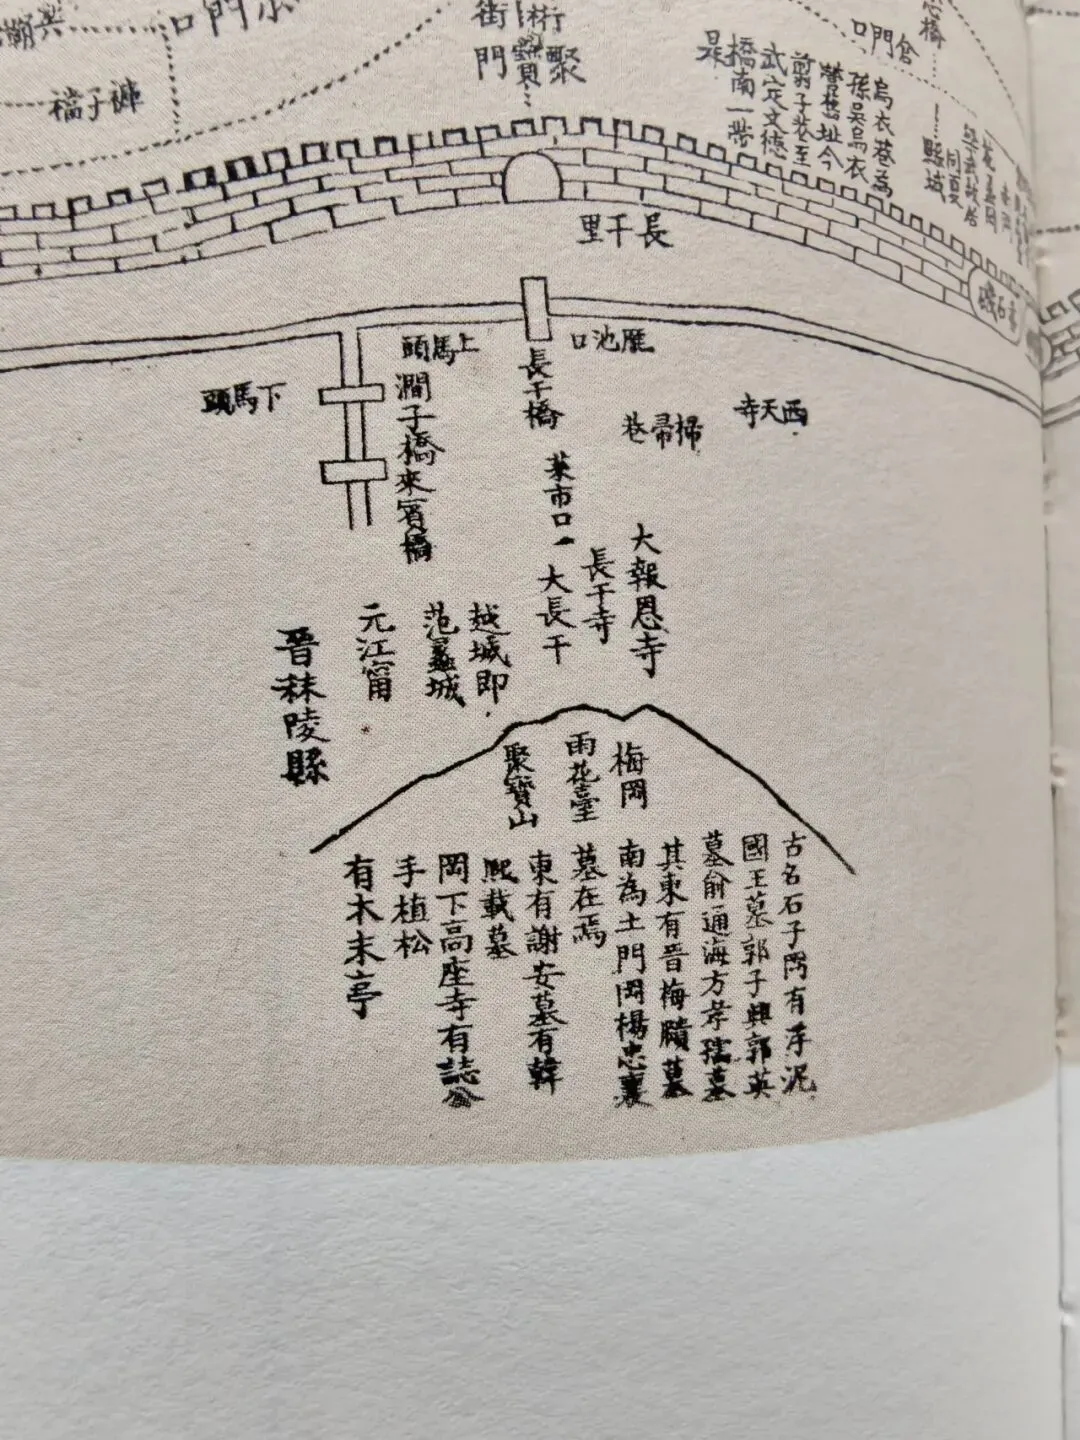 小門口
街
門
聚寶
褲子襠
倉門口
烏衣巷為
孫吳烏衣
營舊址今
剪子巷至
武定文德
橋南一帶
是
同夏
縣城
長干里
上馬頭
下馬頭
澗子橋來賓橋
長干橋
西天寺
掃帚巷
菜市口
大長干
長干寺
大報恩寺
越城即
范蠡城
元江甯
晉秣陵縣
梅岡
雨花臺
聚寶山
古名石子岡有浡泥
國王墓郭子興郭英
墓俞通海方孝孺墓
其東有晉梅賾墓
南為土門岡楊忠襄
墓在焉
東有謝安墓有韓
熙載墓
岡下高座寺有誌公
手植松
有木末亭